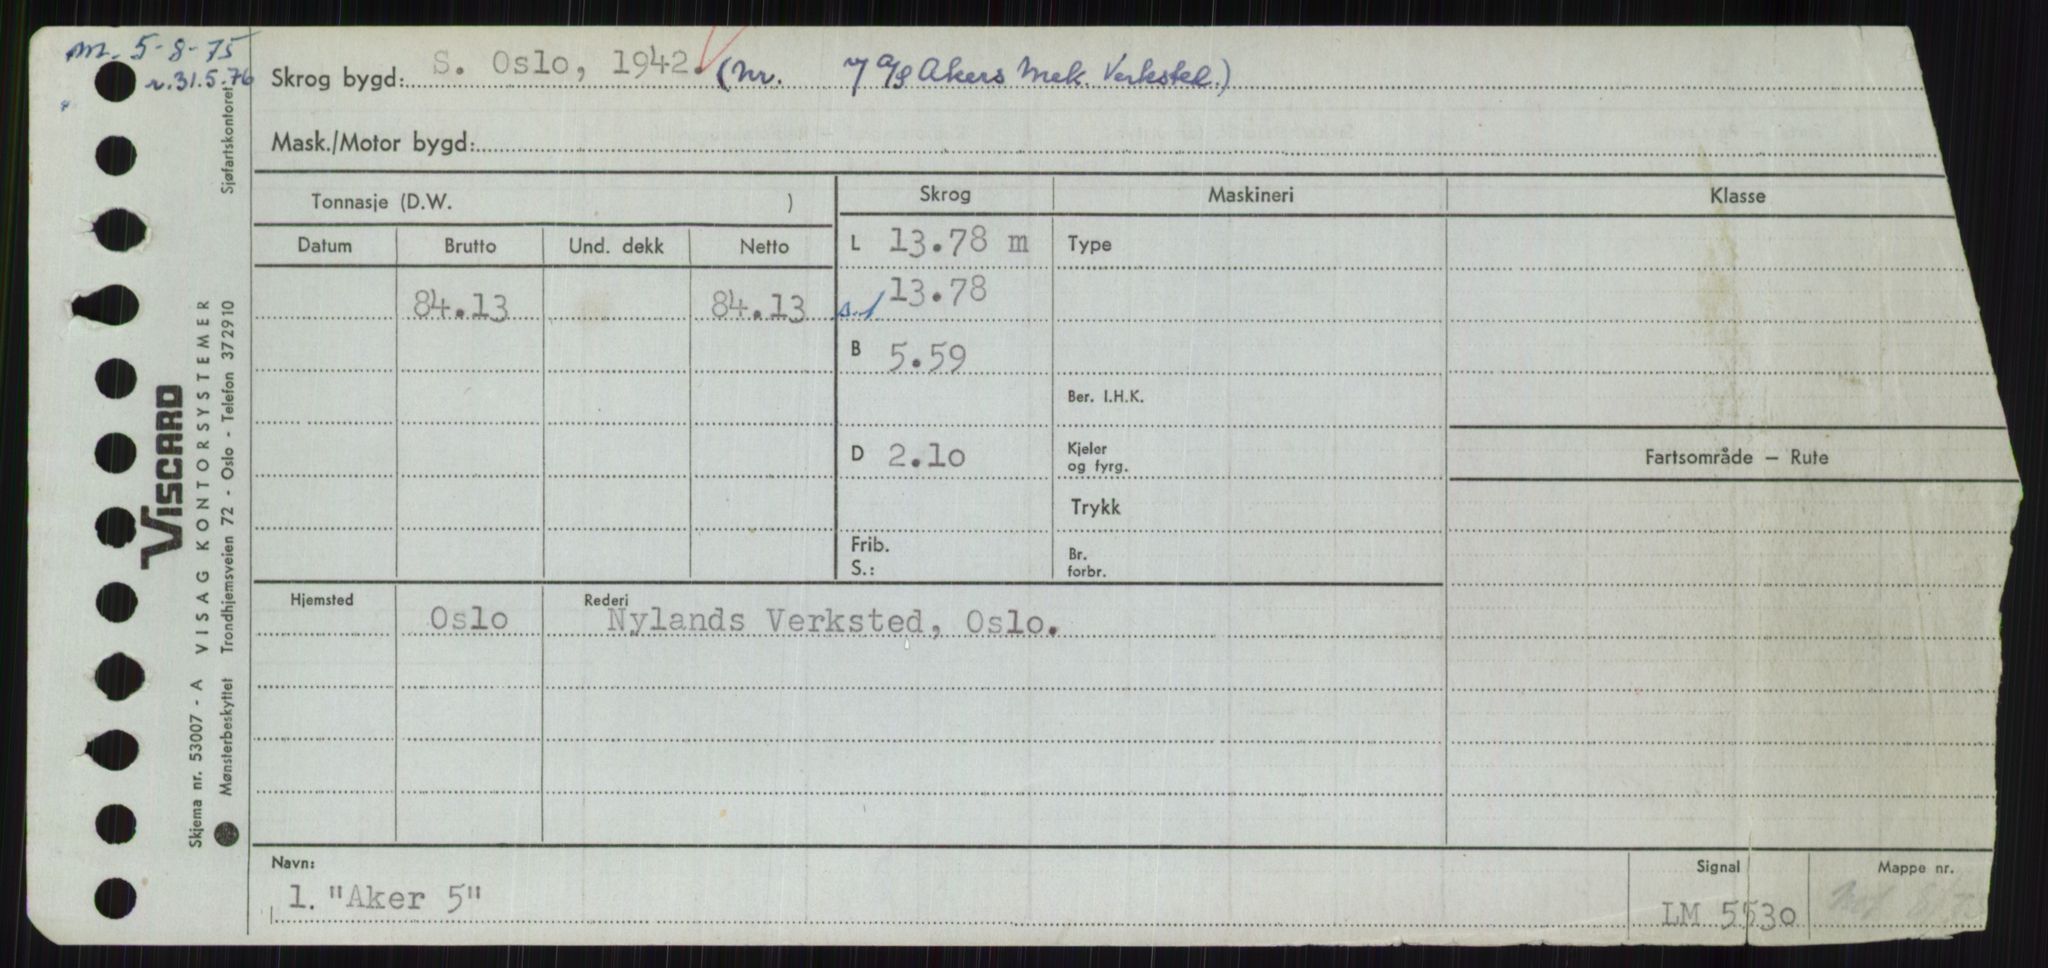 m. 5-8-75
r. 31.5.76
Skrog bygd: S. Oslo, 1942. (Nr. v/ A/S Akers Mek. Verksted.)
Mask./Motor bygd:
Tonnasje (D.W. )
Skrog Maskineri Klasse
Datum Brutto Und. dekk Netto
L 13.78 m Type
84.13 84.13 s.l 13.78
B 5.59
Ber. I.H.K.
D 2.10 Kjeler
og fyrg.
Fartsområde – Rute
Trykk
Frib.
S.:
Br.
forbr.
Hjemsted Oslo Rederi Nylands Verksted, Oslo.
Navn:
1. "Aker 5"
Signal
LM 5530
Mappe nr.
VISCARD
VISAG KONTORSYSTEMER
Skjema nr. 53007 - A
Mønsterbeskyttet Trondhjemsveien 72 - Oslo - Telefon 372910 Sjøfartskontoret